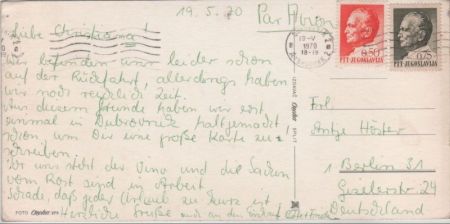 19.5.70
Par Avion
Liebe Christiana!
Wir befinden uns leider schon
auf der Rückfahrt, allerdings haben
wir noch reichlich Zeit.
Aus diesem Grunde haben wir erst
einmal in Dubrovnik haltgemacht,
schon um Dir eine große Karte zu
schreiben.
Vor uns steht der Vino und die Sachen
vom Rost sind in Arbeit
Schade, daß jeder Urlaub zu kurz ist
Herzliche Grüße
FOTO
IZDAVAČ
SPLIT
19-V
1970
18-19
0,50
PTT JUGOSLAVIJA
0,75
PTT JUGOSLAVIJA
Frl.
Antje Höster
1 Berlin 31
Giselerstr. 24
Deutschland